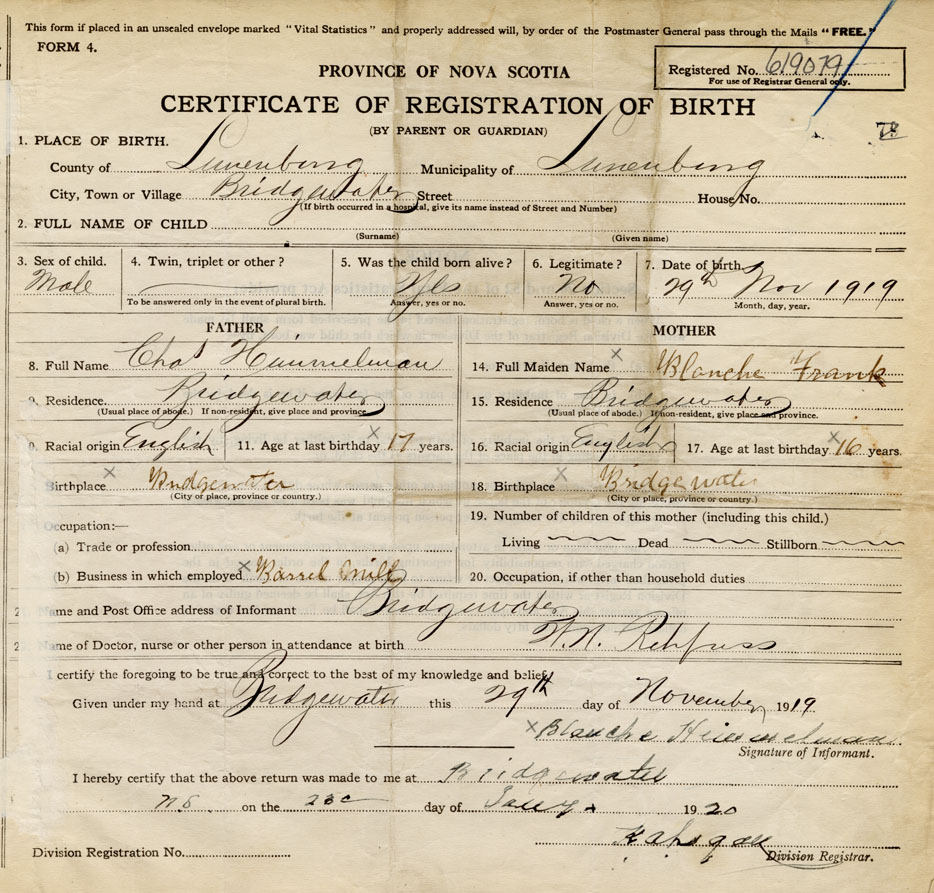 This form if placed in an unsealed envelope marked "Vital Statistics" and properly addressed will, by order of the Postmaster General pass through the Mails "FREE."
FORM 4.
PROVINCE OF NOVA SCOTIA
Registered No. 619079
For use of Registrar General only.
CERTIFICATE OF REGISTRATION OF BIRTH
(BY PARENT OR GUARDIAN)
78
1. PLACE OF BIRTH.
County of Lunenburg Municipality of Lunenburg
City, Town or Village Bridgewater Street House No.
(If birth occurred in a hospital, give its name instead of Street and Number)
2. FULL NAME OF CHILD
(Surname) (Given name)
3. Sex of child. 4. Twin, triplet or other? 5. Was the child born alive? 6. Legitimate? 7. Date of birth.
Male Yes No 29th Nov 1919
To be answered only in the event of plural birth. Answer, yes or no. Answer, yes or no. Month, day, year.
FATHER MOTHER
8. Full Name Chas Himmelman 14. Full Maiden Name Blanche Frank
9. Residence. Bridgewater 15. Residence Bridgewater
(Usual place of abode.) If non-resident, give place and province. (Usual place of abode.) If non-resident, give place and province.
0. Racial origin English 11. Age at last birthday 17 years. 16. Racial origin English 17. Age at last birthday 16 years.
Birthplace Bridgewater 18. Birthplace Bridgewater
(City or place, province or country.) (City or place, province or country.)
Occupation:— 19. Number of children of this mother (including this child.)
(a) Trade or profession Living Dead Stillborn
(b) Business in which employed Barrel Mill 20. Occupation, if other than household duties
2 Name and Post Office address of Informant Bridgewater
2 Name of Doctor, nurse or other person in attendance at birth W.N. Rehfuss
I certify the foregoing to be true and correct to the best of my knowledge and belief.
Given under my hand at Bridgewater this 29th day of November 1919
Blanche Himmelman
Signature of Informant.
I hereby certify that the above return was made to me at Bridgewater
NS on the 23 day of Jany. 1920
Division Registration No. Division Registrar.